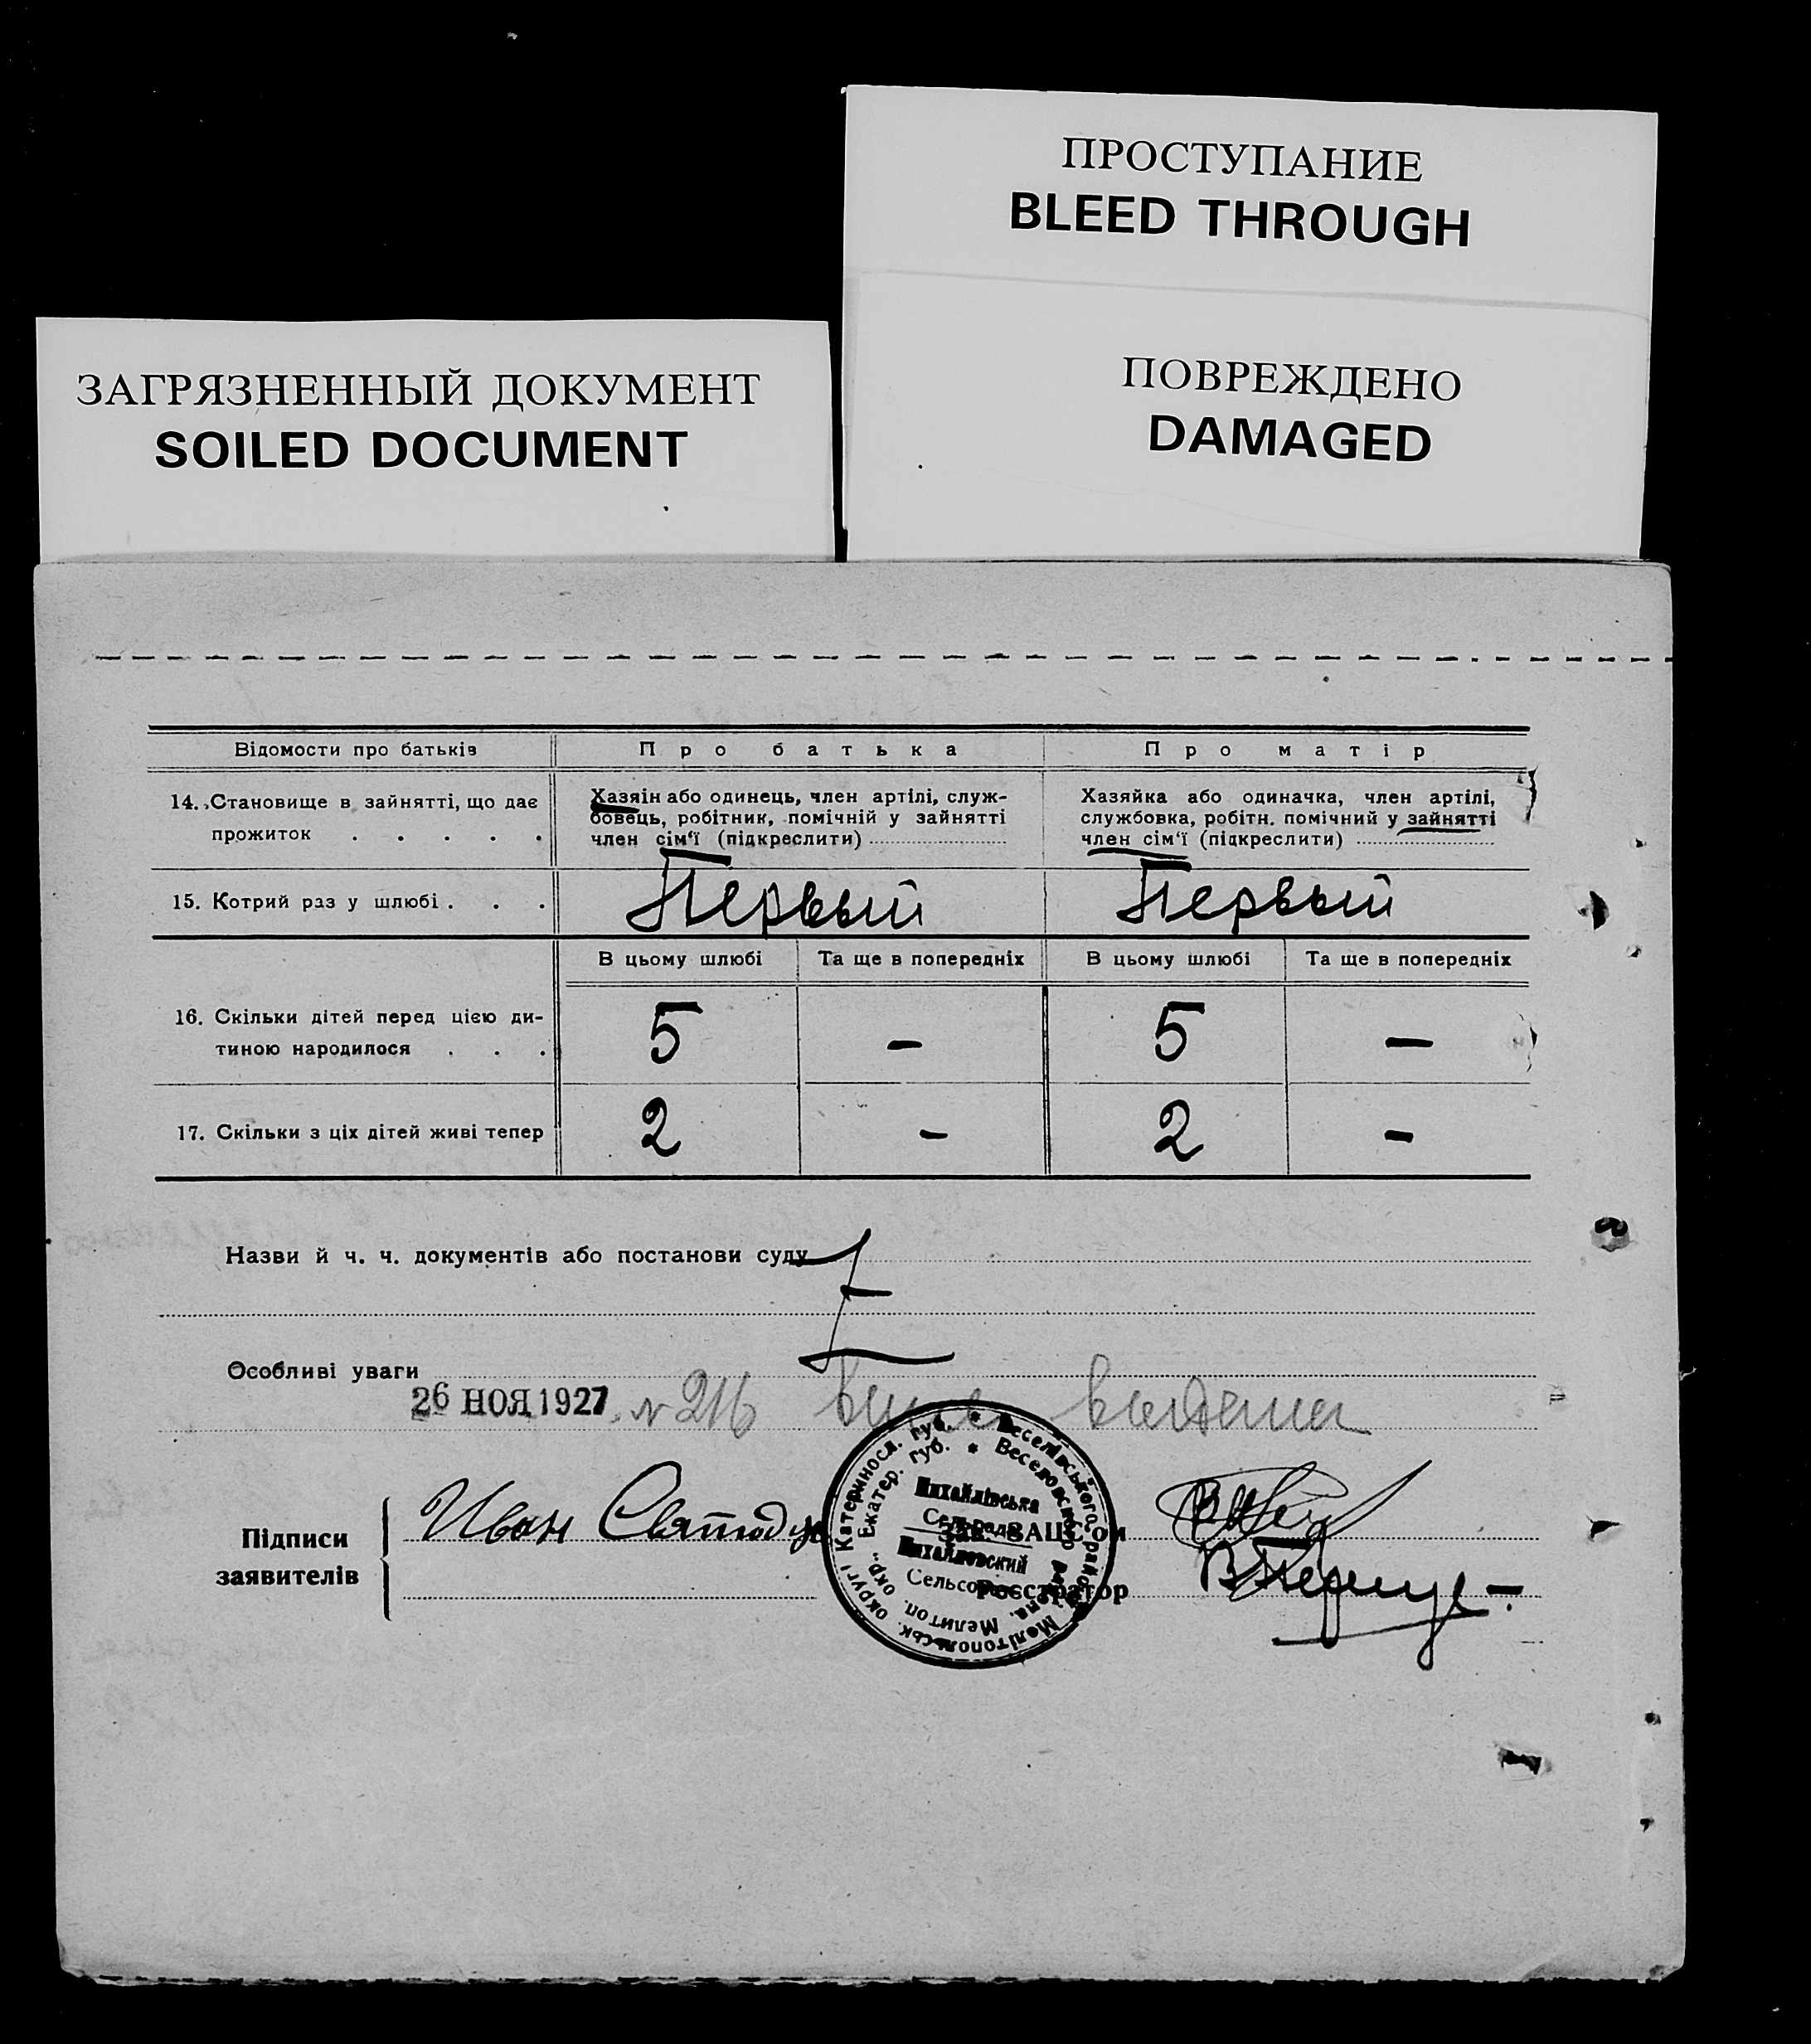 ПРОСТУПАНИЕ
BLEED THROUGH
ПОВРЕЖДЕНО
DAMAGED
ЗАГРЯЗНЕННЫЙ ДОКУМЕНТ
SOILED DOCUMENT
Відомости про батьків
Про батька
Про матір
14. Становище в зайнятті, що дає
прожиток . . . . .
Хазяін або одинець, член артілі, служ-
бовець, робітник, помічній у зайнятті
член сім‘ї (підкреслити)
Хазяйка або одиначка, член артілі,
службовка, робітн. помічний у зайнятті
член сім‘ї (підкреслити)
15. Котрий раз у шлюбі . . .
Первый
Первый
В цьому шлюбі
Та ще в попередніх
В цьому шлюбі
Та ще в попередніх
16. Скільки дітей перед цією ди-
тиною народилося . . .
5
–
5
–
17. Скільки з ціх дітей живі тепер
2
–
2
–
Назви й ч. ч. документів або постанови суду
Особливі уваги
26 НОЯ 1927 № 216 выдана
Підписи
заявителів
Иван
Катериносл. губ. * Веселівського району Мелітопольськ. округі
Екатер. губ. * Веселовского района, Мелитоп. окр.
Михайлівська
Сельрада
Михайловский
Зав. ЗАЦС'ом
Реєстратор